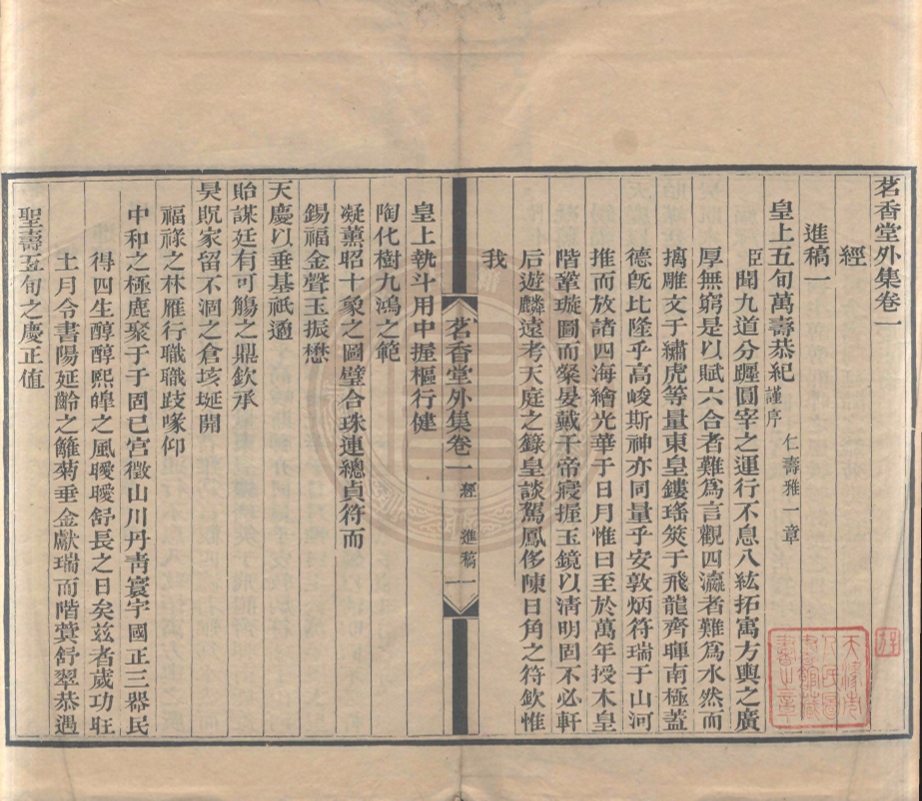 茗香堂外集卷一
經
進稿一
皇上五旬萬壽恭紀 謹序 仁壽雅一章
臣聞九道分躔圓宰之運行不息八紘拓寓方輿之廣
厚無窮是以賦六合者難為言觀四瀛者難為水然而
摛雕文于繡虎等量東皇鏤瑤筴于飛龍齊暉南極蓋
德旣比隆乎高峻斯神亦同量乎安敦炳符瑞于山河
推而放諸四海繪光華于日月惟曰至於萬年授木皇
階葦璇圖而粲晏戴干帝寢握玉鏡以淸明固不必軒
后遊麟遠考天庭之籙皇談駕鳳侈陳日角之符欽惟
我
茗香堂外集卷一 經 進稿 一
皇上執斗用中握樞行健
陶化樹九鴻之範
凝薰昭十象之圖璧合珠連總貞符而
錫福金聲玉振懋
天慶以垂基祇遹
貽謀廷有可觴之鼎欽承
昊貺家留不涸之倉垓埏開
福祿之林雁行職職跂喙仰
中和之極鹿聚于于固已宮徵山川丹靑寰宇國正三器民
得四生醇醇熙皥之風曖曖舒長之日矣茲者歲功在
十月令書陽延齡之籬菊垂金獻瑞而階蓂舒翠恭遇
聖壽五旬之慶正值
天津市
人民圖
書館藏
書之章